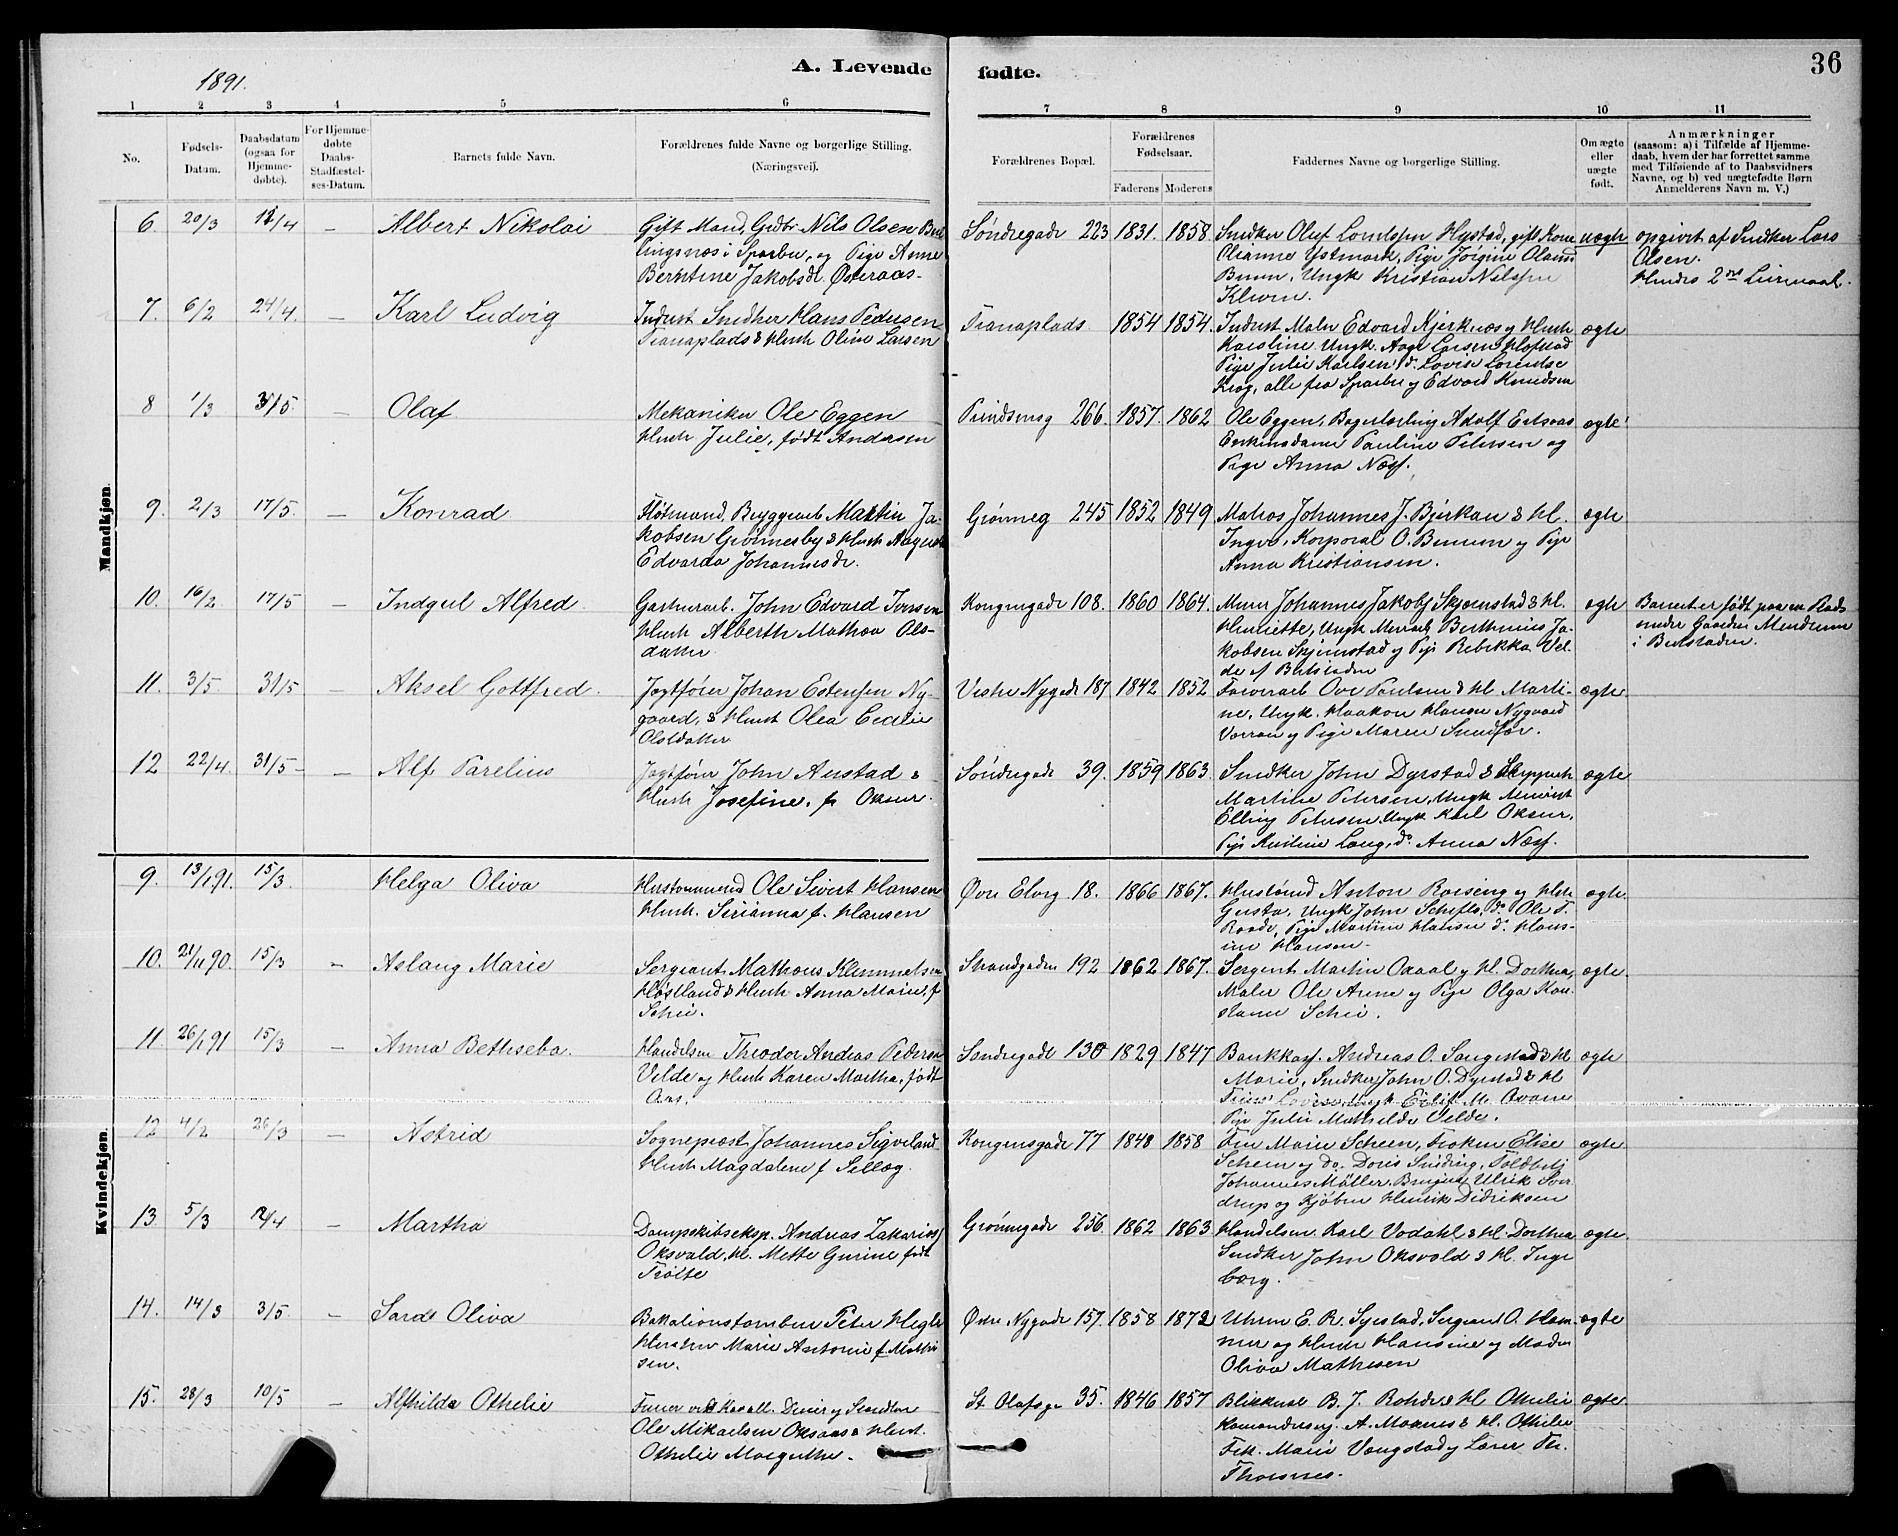 1891.
A. Levende fødte.
36
1 2 3 4 5 6 7 8 9 10 11
No.
Fødsels-Datum.
Daabsdatum (ogsaa for Hjemme-døbte).
For Hjemme-døbte Daabs-Stadfæstel-ses-Datum.
Barnets fulde Navn.
Forældrenes fulde Navne og borgerlige Stilling. (Næringsvei).
Forældrenes Bopæl.
Forældrenes Fødselsaar.
Faderens Moderens
Faddernes Navne og borgerlige Stilling.
Om ægte eller uægte født.
Anmærkninger (saasom: a) i Tilfælde af Hjemme-daab, hvem der har forrettet samme med Tilføiende af to Daabsvidners Navne, og b) ved uægtefødte Børn Anmelderens Navn m. V.)
Mandkjøn.
6. 20/3 — Albert Nikolai
Gift Mand, Gdbr. Nils Olsen
i Sparbu, og Pige Anne
Berntine Jakobsdr. Østeraas
Søndregade 223 1831. 1858.
Snidker Oluf Hystad, gift Kone
Pige Jørgine
Ungk Kristian Nilssen
uægte
opgivet af Snidker Lars
Olsen.
Hendes 2det Leiermaal.
7. 6/2 24/4. — Karl Ludvig
Indust Snedker Hans Pedersen
Tranaplads & Hustr Oline Larsen
Tranaplads 1854 1854.
Indust Maler Edvard Kjerknæs og Hustr
Karoline, Ungk. Aage Larsen Hofstad
Pige Julie Karlsen, do. Lovise
Krog, alle fra Sparbu og Edvard Knudsen
ægte
8 1/3 3/5. — Olaf
Mekaniker Ole Eggen
Hustr Julie, født Andersen
Prindsensg 266. 1857. 1862
Ole Eggen, Bagerlærling Adolf
Enkemadame Pauline Petersen og
Pige Anna Næss.
ægte
9. 2/3 17/5. — Konrad
Bryggearb Martin Ja-
kobsen Grønnesby & Hustr
Edvarda Johannesdr.
Grønneg 245 1852 1849
Matros Johannes J. Bjerkan & H.
Inger, Korporal O. og Pige
Anna Kristiansen.
ægte
10. 16/2 17/5 — Indgul Alfred
Garverarb. John Edvard Iversen
Hustr Alberth Mathea Ols-
datter
Kongensgade 108. 1860 1864.
Murer Johannes Jakobs Skjemstad & H.
Henriette, Ungk Berthinius Ja-
kobsen Skjemstad og Pige Rebekka Vel-
de af Beitstaden
ægte
Barnet er født paa en Plads
under Gaarden
i Beitstaden.
11. 3/5 31/5 — Aksel Gottfred.
Jagtfører Johan Estensen Ny-
gaard, & Hustr Olea Cecilie
Olsdatter
Vestre Nygade 187 1842 1852
Ove Paulsen & H. Marti-
ne, Ungk. Haakon Hansen Nygaard
og Pige Maren
ægte.
12 22/4. 31/5 — Alf Parelius
Jagtfører John Austad &
Hustr Josefine, f. Oksur.
Søndregade 39. 1859 1863.
Snidker John Dyrstad &
Martine Petersen, Ungk
Elling Petersen, Ungk Karl Oksur,
Pige Kristine Lang, do. Anna Næss.
ægte
Kvindekjøn.
9. 13/1 91. 15/3. Helga Oliva
Hustømmermd Ole Sivert Hansen
Hustr. Sirianna f. Hansen
Øvre Elveg 18. 1866 1867.
Anton Røising og Hstr
Gusta, Ungk John do Ole T.
Pige Martine Hansen do. Hans-
ine Hansen.
ægte.
10. 21/11 90. 15/3 — Aslaug Marie
Sergeant Mathæus Klemmetsen
& Hustr Anna Marie, f
Schei.
Strandgaden 192 1862 1867.
Sergent Martin og H. Dorthea,
Maler Ole Arne og Pige Olga Kon-
stanse Schei.
ægte.
11. 26/1 91 15/3 — Anna Bethseba.
Handelsm Theodor Andreas Pedersen
Velde og Hustr Karen Martha, født
Aas.
Søndregade 130 1829 1847
Bankkass. Andreas O. Sangestad & H
Marie, Snidker John O. Dyrstad & H
Lovise, Ungk M.
Pige Julie Mathilde Velde.
ægte
12 4/2 26/3 — Astrid
Sogneprest Johannes Sigveland
Hustr Magdalene f Selleg.
Kongensgade 77 1848 1858
Fru Marie Scheen, Frøken Elise
Scheen og do. Doris Sinding, Toldbetj
Johannes Möller, Ulrik Sver-
drup og Kjøbm Henrik Didriksen
ægte.
13. 5/3 — Martha
Dampskibseksp. Andreas Zakarias
Oksvald, H. Mette Gurine født
Trötte
Grönnegade 256. 1862 1863
Handelsm. Karl Vodahl & H. Dorthea
Snidker John Oksvold & H. Inge
borg.
ægte.
14. 14/3 3/5. — Oliva
Bataljonstambur Peter Hegle
Marie Antonie f. Mathi-
sen.
Øvre Nygade 157. 1858 1872
Uhrm E. R. Syrstad, Sergeant O. Ham-
mer og Hustr Hansine og Madm
Oliva Mathisen
ægte
15. 28/3 10/5 — Alfhilda Othelie
Furer ved Kavall.
Ole Mikaelsen Oksaas & Hustr.
Othelie Margrethe.
St Olafsg 35. 1846 1857
B. J. Rohde & H. Othelie
A. Moxnes & H. Othelie
Frk. Marie Vangstad og Lærer Th.
Thorsnes.
ægte.